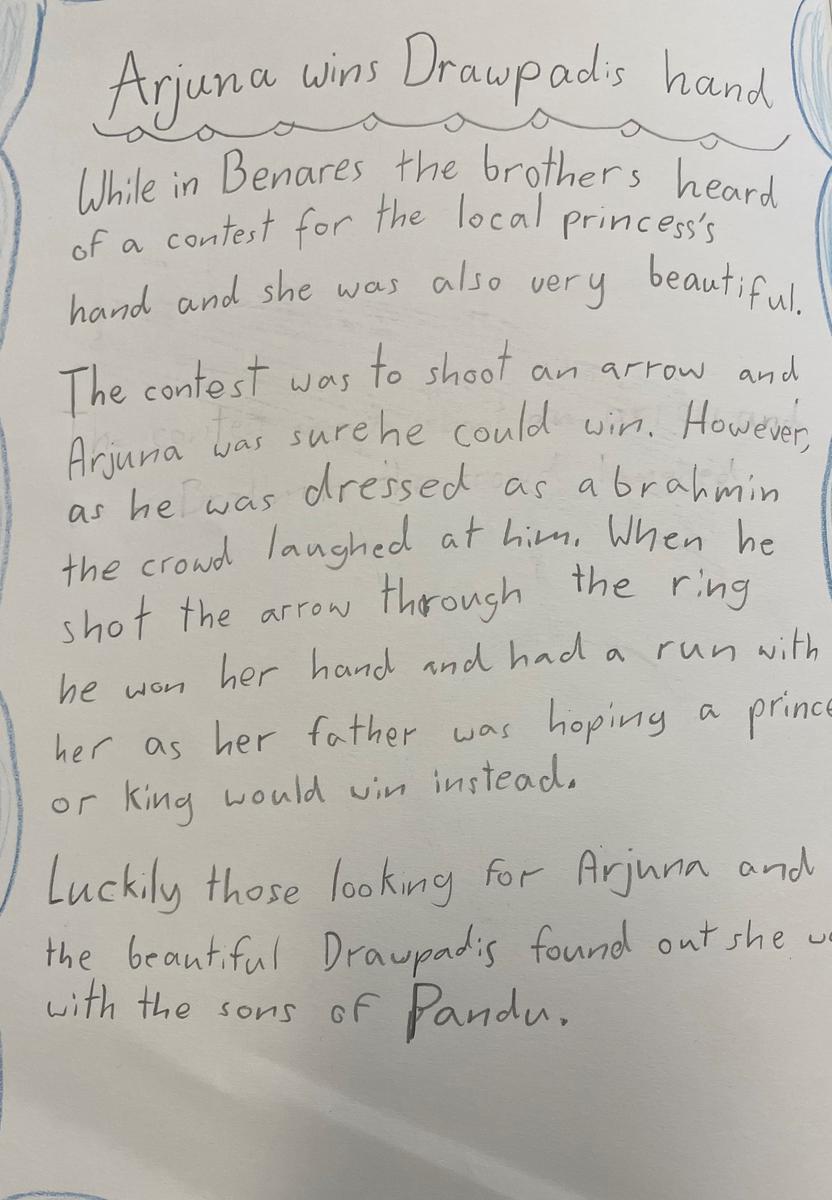 Arjuna wins Drawpadis hand
While in Benares the brothers heard
of a contest for the local princess's
hand and she was also very beautiful.
The contest was to shoot an arrow and
Arjuna was sure he could win. However,
as he was dressed as a brahmin
the crowd laughed at him. When he
shot the arrow through the ring
he won her hand and had a run with
her as her father was hoping a prince
or king would win instead.
Luckily those looking for Arjuna and
the beautiful Drawpadis found out she
with the sons of Pandu.